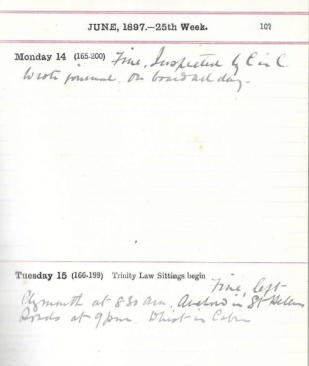 JUNE, 1897.—25th Week. 107
Monday 14 (165-200) Fine, Inspected by C in C.
Wrote journal. On board all day.
Tuesday 15 (166-199) Trinity Law Sittings begin
Fine, left
Plymouth at 8.30 am. Anchored in St Helens
Roads at 9 pm. Whist in Cabin